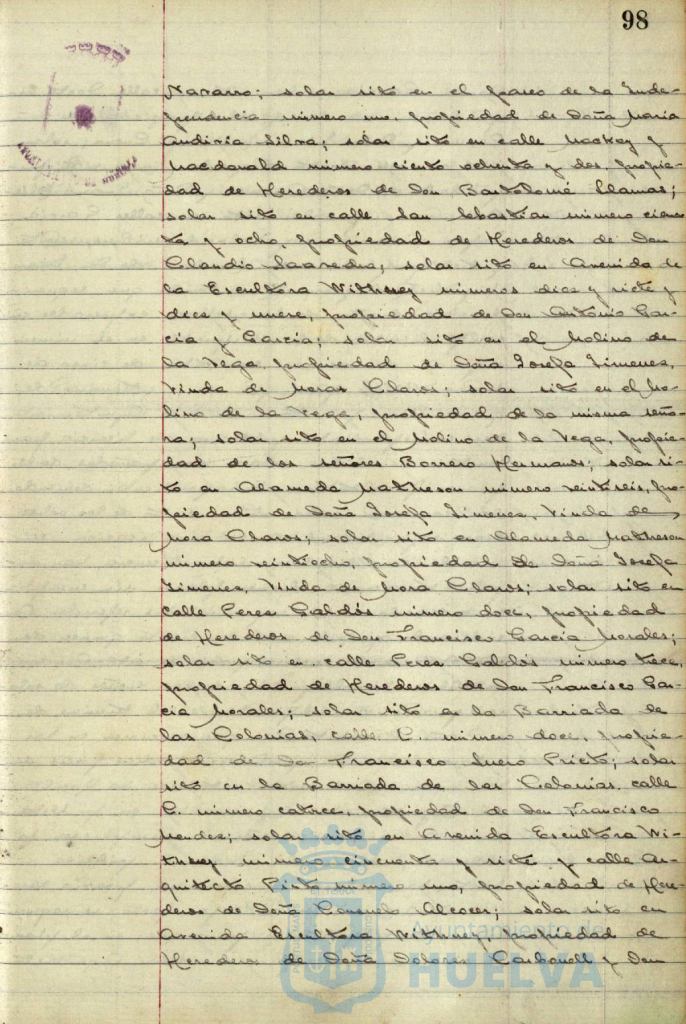 98
Navarro; solar sito en el paseo de la Inde-
pendencia número uno, propiedad de Doña María
Silva; solar sito en calle Mackay y
Macdonald número ciento ochenta y dos, propie-
dad de Herederos de Don Bartolomé Llamas;
solar sito en calle San Sebastián número
y ocho, propiedad de Herederos de Don
Claudio Saavedra; solar sito en Avenida de
la Escultora Withney números diez y siete y
diez y nueve, propiedad de Don Antonio Gar-
cía y García; solar sito en el Molino de
la Vega, propiedad de Doña Josefa Jimenez,
Viuda de Mora Claros; solar sito en el Mo-
lino de la Vega, propiedad de la misma seño-
ra; solar sito en el Molino de la Vega, propie-
dad de los señores Borrero Hermanos; solar si-
to en Alameda Matheson número veintiseis, pro-
piedad de Doña Josefa Jimenez, Viuda de
Mora Claros; solar sito en Alameda Matheson
número veintiocho, propiedad de Doña Josefa
Jimenez, Viuda de Mora Claros; solar sito en
calle Perez Galdós número doce, propiedad
de Herederos de Don Francisco García Morales;
solar sito en calle Perez Galdós número trece,
propiedad de Herederos de Don Francisco Gar-
cía Morales; solar sito en la Barriada de
las Colonias, calle C. número doce, propie-
dad de Don Francisco Suero Prieto; solar
sito en la Barriada de las Colonias, calle
C. número catorce, propiedad de Don Francisco
Mendez; solar sito en Avenida Escultora Wi-
thney número cincuenta y siete y calle Ar-
quitecto Pinto número uno, propiedad de Here-
deros de Doña Consuelo Alcocer; solar sito en
Avenida Escultora Withney, propiedad de
Herederos de Doña Dolores Carbonell y Don
Ayuntamiento de
HUELVA